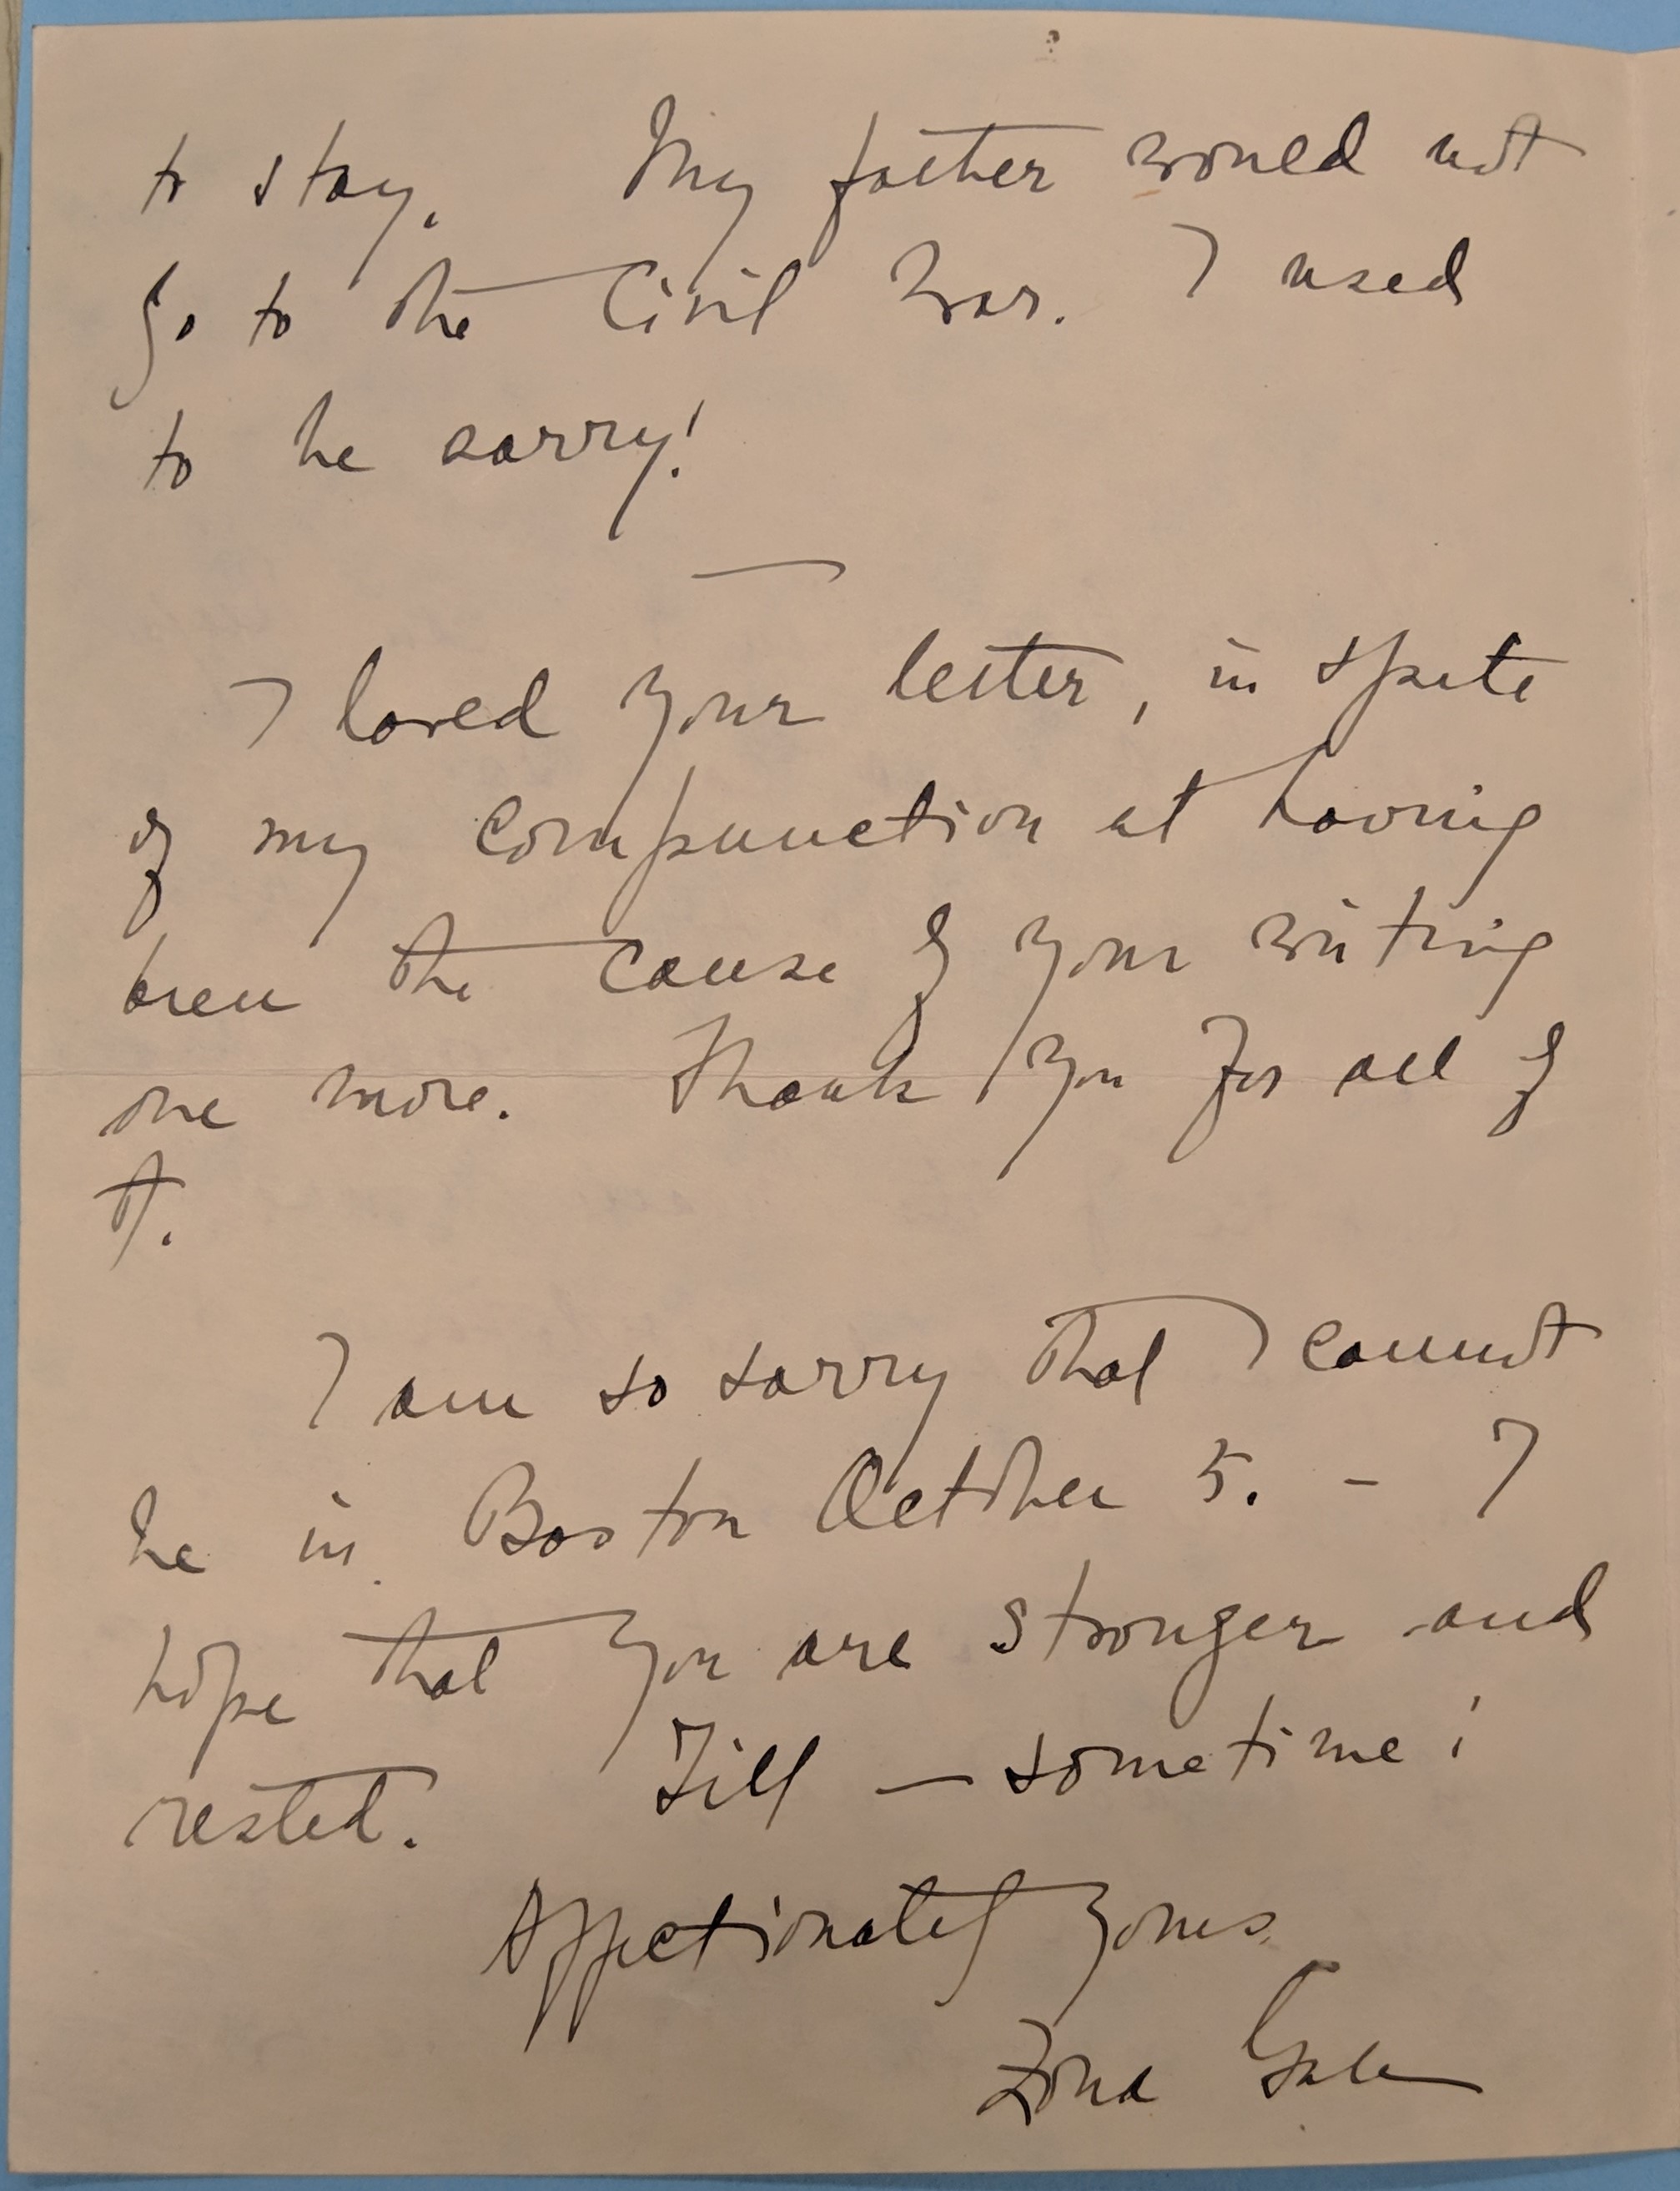 to stay. My father would not
go to the Civil War. I used
to be sorry!
—
I loved your letter, in spite
of my compunction at having
been the cause of your writing
one more. Thank you for all of
it.
I am so sorry that I cannot
be in Boston October 5. – I
hope that you are stronger and
rested. Till — sometime!
Affectionately yours
Zona Gale